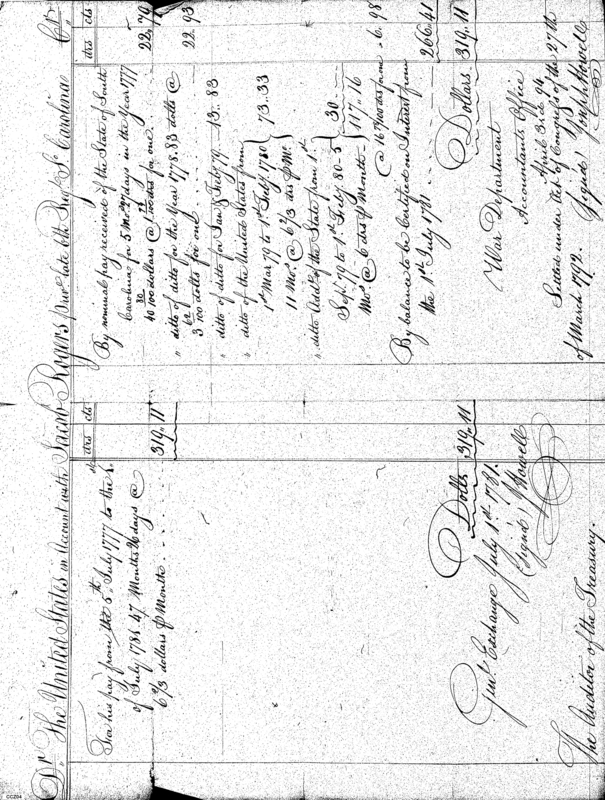 Dr. The United States in Account with Jacob Rogers priv. late 6th Regt. So. Carolina Cr.
drs cts
To his pay from the 5th July 1777 to the 1.
of July 1781 47 Months 26 days @
6 2/3 dollars ℔ Month . . . . 319.11
Dolls 319.11
Genl. Exchange July 1st 1781.
(Signd) J Howell
The Auditor of the Treasury.
drs cts
By nominal pay received of the State of South
Carolina for 5 Mos. 27 days in the Year 1777
dollars @ for one
22.79
„ ditto of ditto for the Year 1778. 83 dolls @
3 62/100 dolls for one . . . . 22.93
„ ditto of ditto for Jany & Feby 79 — 13.83
„ ditto of the United States from
1st Mar 79 to 1st Feby 1780
11 Mos. @ 6 2/3 drs ℔ Mo. 73.33
„ ditto Addl. of the State from 1st
Sept. 79 to 1st Feby 80 — 5
Mos. @ 6 drs ℔ Month — 30.—
117.16
@ for one 6.98
By balance to be Certified on Interest from
the 1st July 1781 . . . . 266.41
Dollars 319.11
War Department
Accountants Office
April 3rd. 94
Settled under Act of Congress of the 27th
of March 1792.
Signd Joseph Howell
CCZ04